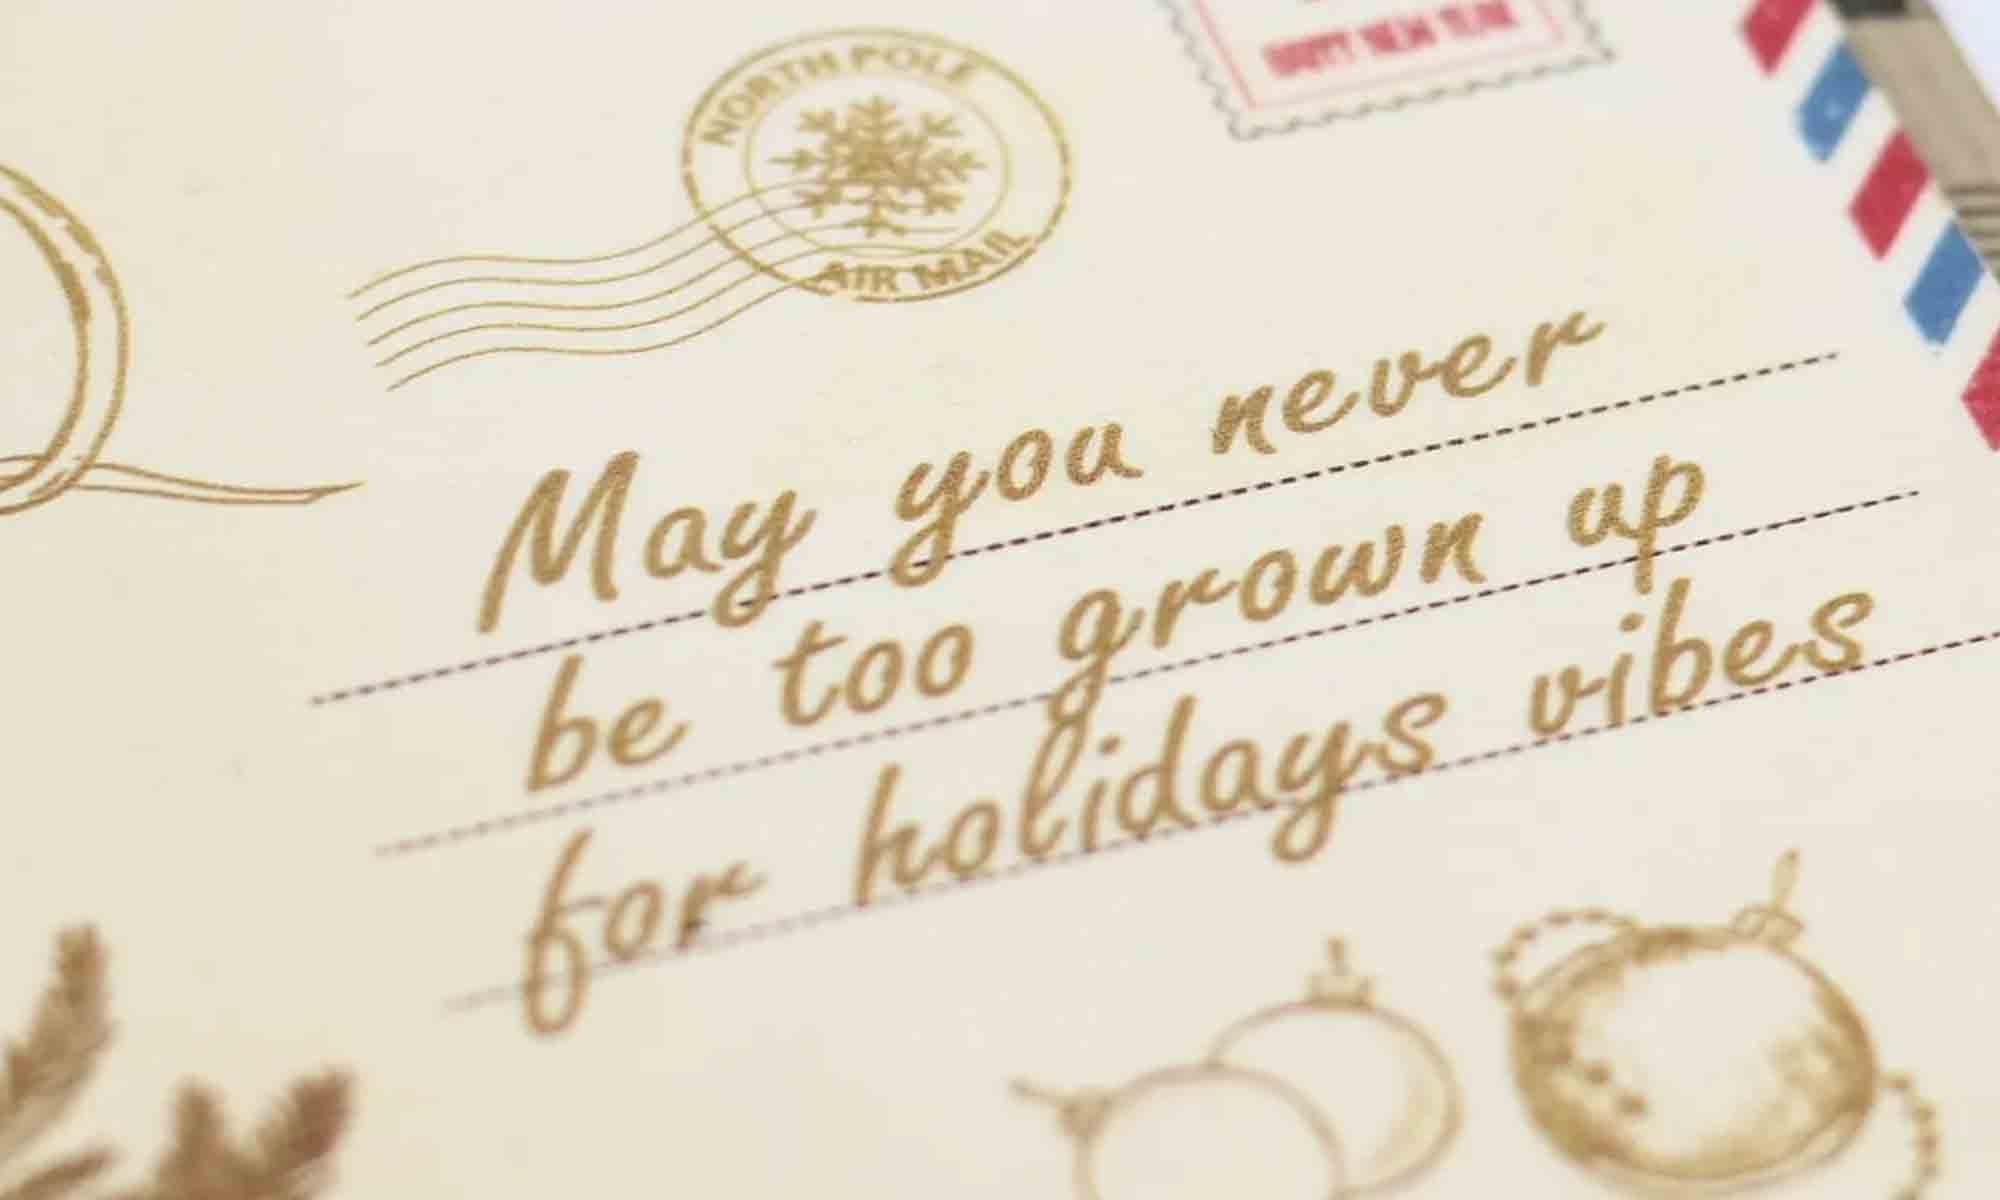 NORTH POLE
AIR MAIL
HAPPY NEW YEAR
May you never
be too grown up
for holidays vibes